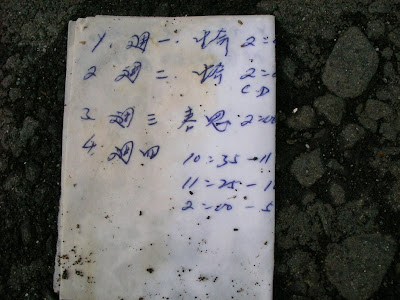 1. 週一. 2=
2 週二. 2=
C D
3. 週三 2=00
4. 週四
10=35-11
11=25-1
2=00-5